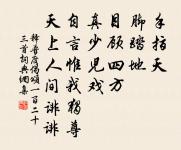 手指天
脚踏地
目顾四方
真少儿戏
自言惟我独尊
天上人间诽诽
释普度偈颂一百二十
三首词典网集